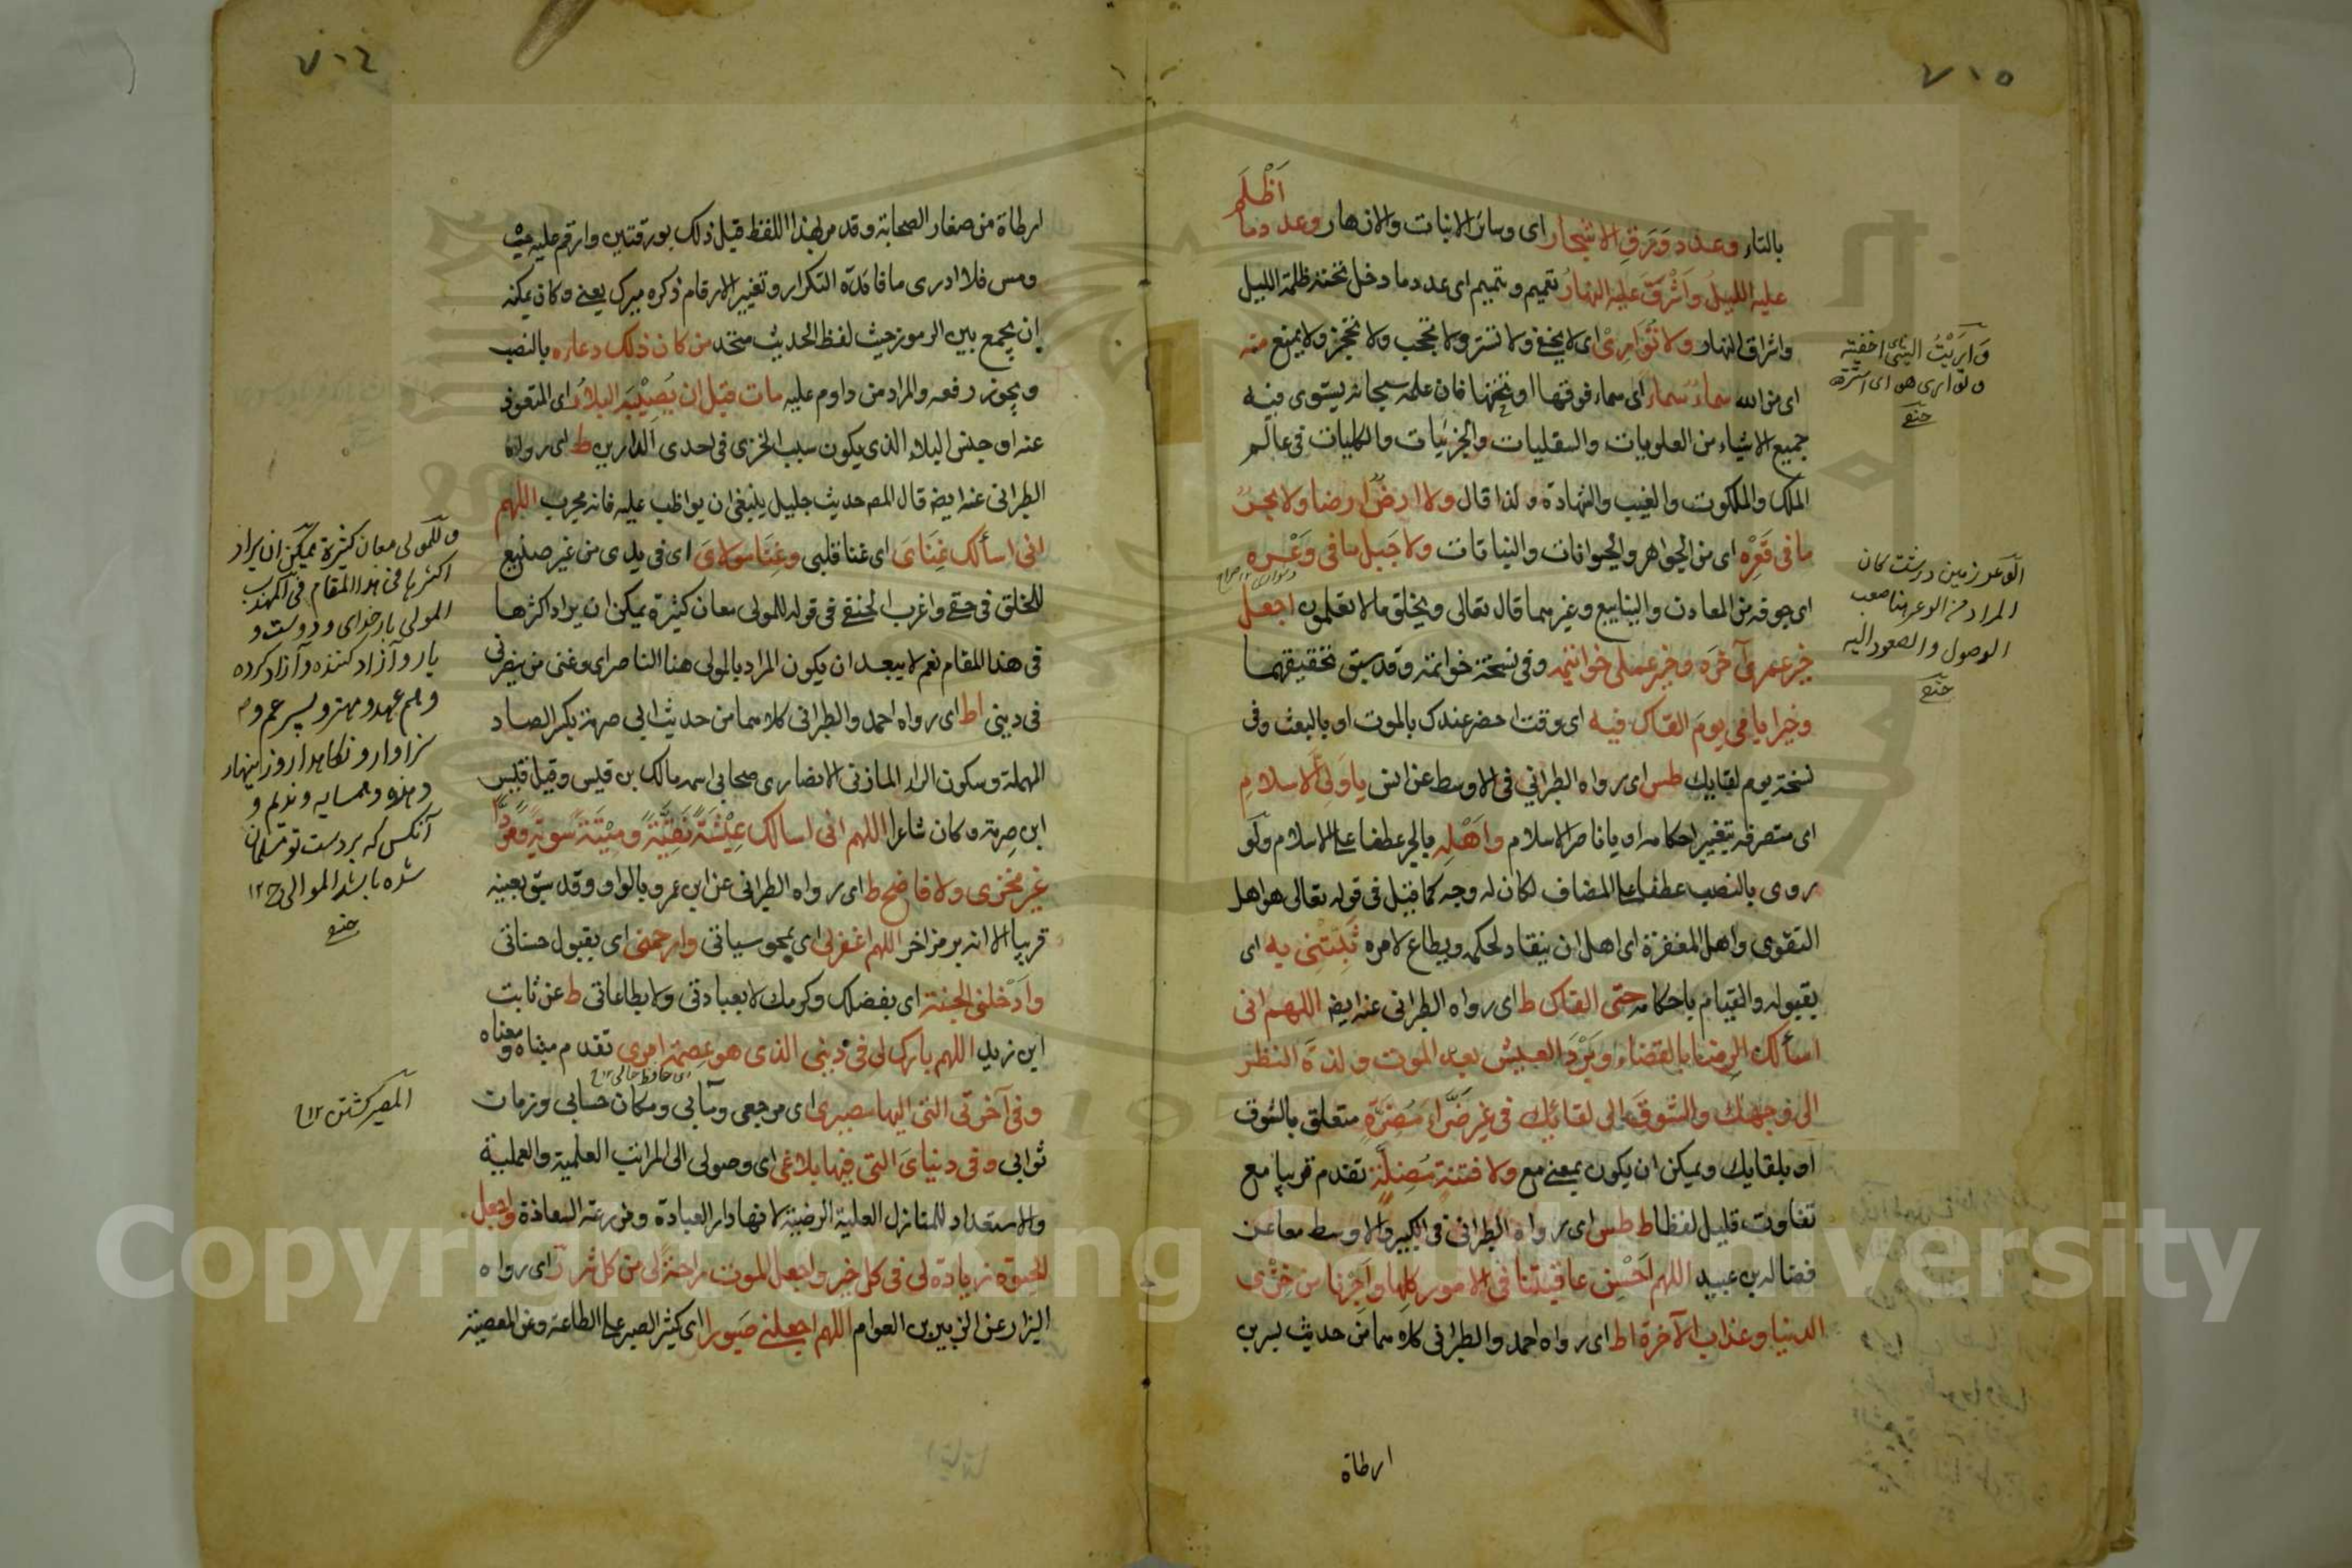 ٧١٥
أَظْلَمَ
بالتاء وعدد وَرَقِ الاشجار اى وسائر الانبات والانهار وعدد ما
عليه الليل وَاَشْرَقَ عليه النهارُ تعميم وتتميم اى عدد ما دخل تحتته ظلمة الليل
واشراق النهار ولا تُوَارِىْ اى لا يخفى ولا تستر ولا تحجب ولا تحجز ولا يمنع منه
اى من الله سماءٌ سماءً اى سماء فوقها او تحتها فان علمه سبحانه يستوى فيه
جميع الاشياء من العلويات والسفليات والجزئيات والكليات فى عالم
الملك والملكوت والغيب والشهادة ولذا قال ولا ارضٌ ارضا ولا بحرٌ
ما فى قَعْرِه اى من الجواهر والحيوانات والنباتات ولا جَبل ما فى وَعْرِه
اى جوفه من المعادن والينابيع وغيرهما قال تعالى ويخلق ما لا تعلمون اجعل
خير عمرى آخره وخير عملى خواتيمه وفى نسخة خواتمه وقد سبق تحقيقهما
وخير ايامى يومَ القاك فيه اى وقت احضر عندك بالموت او بالبعث وفى
نسخة يوم لقايك طس اى رواه الطبرانى فى الاوسط عن انس يا وَلِىَّ الاسلامِ
اى متصرفه بتغيير احكامه او يا ناصر الاسلام واَهْلِه بالجر عطفا على الاسلام ولو
روى بالنصب عطفا على المضاف لكان له وجه كما قيل فى قوله تعالى هو اهل
التقوى واهل المغفرة اى اهل ان ينقاد لحكمه ويطاع لامره ثَبِّتْنِى به اى
بقبوله والقيام باحكامه حتى القاك ط اى رواه الطبرانى عنه ايضا اللهم انى
اسألك الرضا بالقضاء وبَرْدَ العيش بعد الموت ولذة النظر
الى وجهك والشوقَ الى لقائك فى غير ضَرَّاءَ مُضِرَّةٍ متعلق بالشوق
او بلقايك ويمكن ان يكون بمعنى مع ولا فتنةٍ مُضِلَّةٍ تقدم قريبا مع
تفاوت قليل لفظا ط طس اى رواه الطبرانى فى الكبير والاوسط معا عن
فضاله بن عبيد اللهم اَحْسِن عاقبتنا فى الامور كلها واَجِرْنا من خِزْى
الدنيا وعذاب الآخرة اط اى رواه احمد والطبرانى كلاهما من حديث بسر بن
ارطاة
وَارَيْتُ الشئ اى اخفيته
وتوارى هو اى استتر
الوعر زمين درشت كان
المراد من الوعر هنا صعب
الوصول والصعود اليه
٧١٤
ارطاة من صغار الصحابة وقد مر بهذا اللفظ قبل ذلك بورقتين وارقم عليه حب
ومس فلا ادرى ما فائدة التكرار وتغيير الارقام ذكره ميرك يعنى وكان يمكنه
ان يجمع بين الرموز حيث لفظ الحديث متحد من كان ذلك دعاره بالنصب
ويجوز رفعه والمراد من داوم عليه مات قبل ان يُصِيْبَه البلاءُ اى المتعوذ
عنه او جنس البلاء الذى يكون سبب الخزى فى احدى الدارين ط اى رواه
الطبرانى عنه ايضا قال المص حديث جليل ينبغى ان يواظب عليه فانه مجرب اللهم
انى اسألك غِنَاىَ اى غنا قلبى وغِنَا مولاىَ اى فى يدى من غير صنيع
للخلق فى حقى واغرب الحنفى فى قوله للمولى معان كثيرة يمكن ان يراد اكثرها
فى هذا المقام نعم لا يبعد ان يكون المراد بالمولى هنا الناصر اى وغنى من ينصرنى
فى دينى اط اى رواه احمد والطبرانى كلاهما من حديث ابى صرمة بكسر الصاد
المهملة وسكون الراء المازنى الانصارى صحابى اسمه مالك بن قيس وقيل قيس
ابن صِرمة وكان شاعرا اللهم انى اسالك عِيْشَةً نَقِيَّةً ومِيْتَةً سَوِيّةً ومَرَدًّا
غير مخزى ولا فاضح ط اى رواه الطبرانى عن ابن عمرو بالواو وقد سبق بعينه
قريبا الا انه برمز اخر اللهم اغفرلى اى بمحو سيأتى وارحمنى اى بقبول حسناتى
وادْخلنى الجنة اى بفضلك وكرمك لا بعبادتى ولا بطاعاتى ط عن ثابت
ابن زيد اللهم بارك لى فى دينى الذى هو عصمة امرى تقدم مبناه ومعناه
وفى آخرتى التى اليها مصيرى اى مرجعى ومآبى ومكان حسابى وزمان
ثوابى وفى دنياىَ التى فيها بلاغى اى وصولى الى المراتب العلمية والعملية
والاستعداد للمنازل العلية الرضية لانها دار العبادة ومزرعة السعادة واجعل
الحيوة زيادة لى فى كل خير واجعل الموت راحةً لى من كل شر ز اى رواه
البزار عن الزبير بن العوام اللهم اجعلنى صَبورا اى كثير الصبر على الطاعة وعن المعصية
وللمولى معان كثيرة يمكن ان يراد
اكثرها فى هذا المقام فى المهذب
المولى بار خداى ودوست و
يار وآزاد كننده وآزاد كرده
وهم عهد ومهتر وپسر عم و
سزاوار ونگاهدار وزينهار
وهمسايه ونديم و
آنكس كه بر دست تو مسلمان
شده باشد الموالى ج ١٢
المصير گشتن ١٢